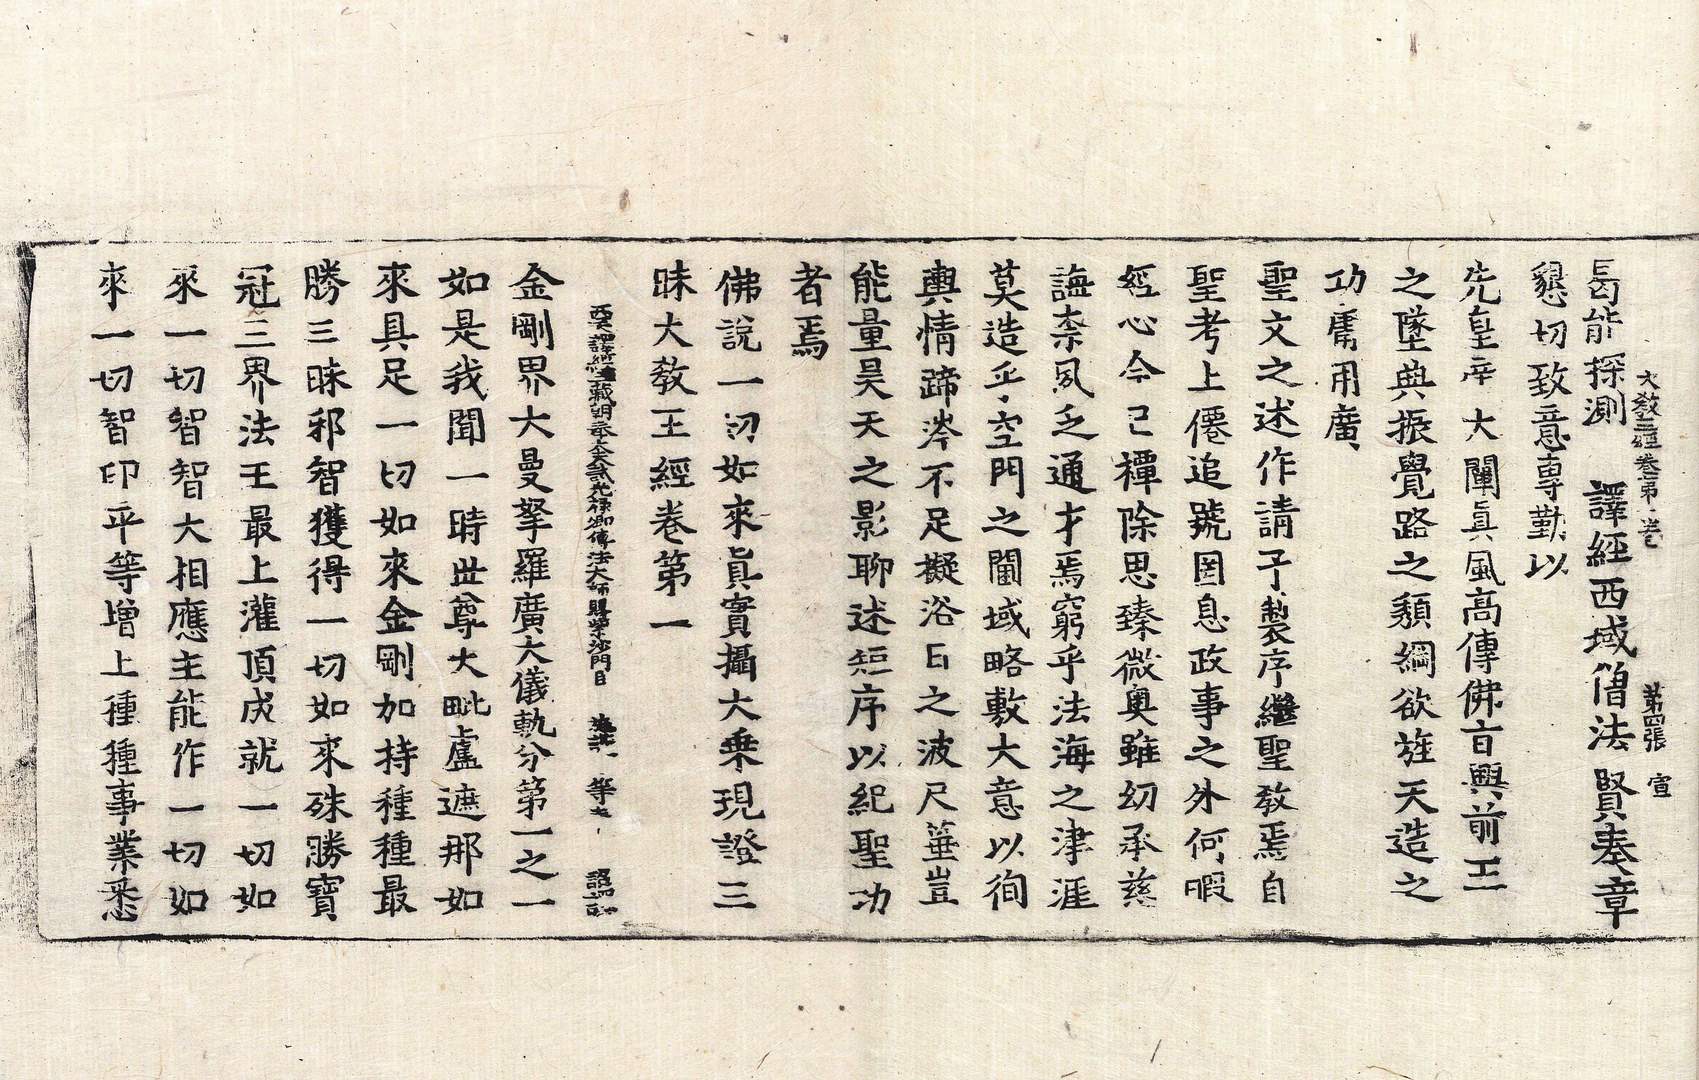 大教王經卷第一 第四張 宣
曷能探測 譯經西域僧法賢奉章
懇切致意專勤以
先皇帝大闡眞風高傳佛旨興前王
之墜典振覺路之頽綱欲旌天造之
功庸用廣
聖文之述作請予製序繼聖教焉自
聖考上僊追號罔息政事之外何暇
經心今已禫除思臻微奧雖幼承慈
誨柰夙乏通才焉窮乎法海之津涯
莫造乎空門之閫域略敷大意以徇
輿情蹄涔不足擬浴日之波尺箠豈
能量昊天之影聊述短序以紀聖功
者焉
佛說一切如來眞實攝大乗現證三
昧大教王經卷第一
西天譯經三藏朝奉大夫試光祿卿傳法大師賜紫沙門臣 施護 等奉 詔譯
金剛界大曼拏羅廣大儀軌分第一之一
如是我聞一時世尊大毗盧遮那如
來具足一切如來金剛加持種種最
勝三昧邪智獲得一切如來殊勝寶
冠三界法王最上灌頂成就一切如
來一切智智大相應主能作一切如
來一切智印平等增上種種事業悉